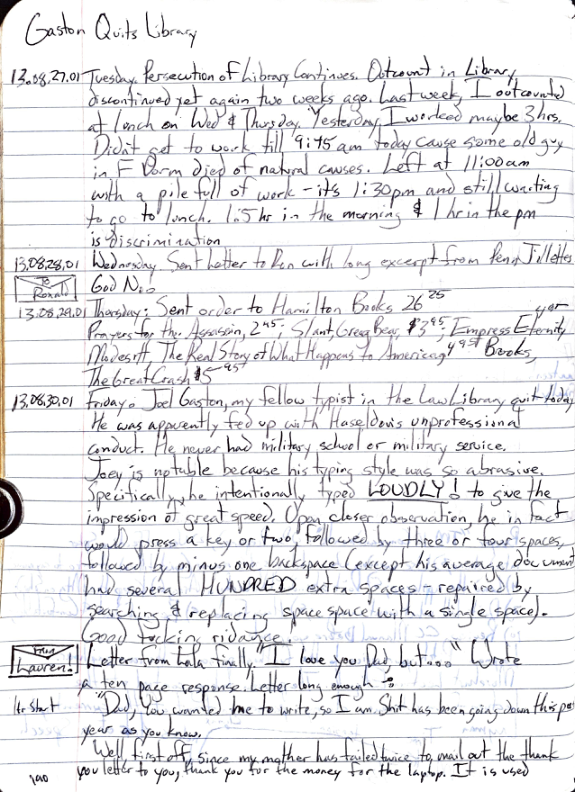 Gaston Quits Library
13.08.27.01 Tuesday. Persecution of Library Continues. Outcount in Library
discontinued yet again two weeks ago. Last week, I outcounted
at lunch on Wed & Thursday. Yesterday, I worked maybe 3 hrs.
Didn't get to work till 9:45 am today cause some old guy
in F Dorm died of natural causes. Left at 11:00am
with a pile full of work - its 1:30pm and still waiting
to go to lunch. 1.5 hr in the morning & 1 hr in the pm
is discrimination
13.08.28.01 Wednesday. Sent Letter to Ron with long excerpt from Penn Jillettes
To Ronald God No!
13.08.29.01 Thursday: Sent order to Hamilton Books 26 25
Prayers for the Assassin, 2 95; Slant, Greg Bear, $3 95, Empress Eternity
Modesitt, The Real Story of What Happens to American 4 95 Books,
The Great Crash $5 95
13.08.30.01 Friday. Joel Gaston, my fellow typist in the Law Library quit today
He was apparently fed up with Haseldon's unprofessional
conduct. He never had military school or military service.
Joey is notable because his typing style was so abrasive.
Specifically, he intentionally typed LOUDLY! to give the
impression of great speed. Upon closer observation, he in fact
would press a key or two, followed by three or four spaces,
followed by minus one backspace (except his average document
had several HUNDRED extra spaces - repaired by
searching & replacing space space with a single space).
Good fucking ridance.
From Lauren! Letter from Lala finally, "I love you Dad, but..." Wrote
a ten page response. Letter long enough
Ltr Start "Dad, You wanted me to write, so I am. Shit has been going down this past
year as you know.
Well first off, since my mother has failed twice to mail out the thank
you letter to you, thank you for the money for the laptop. It is used